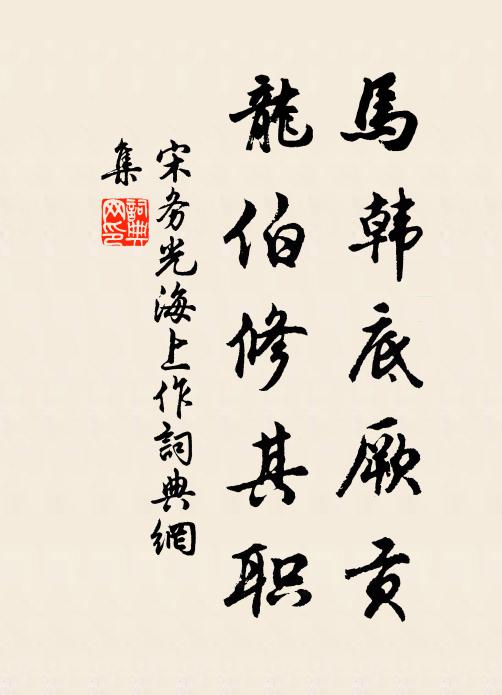 馬韩底厥贡
龍伯修其职
宋务光海上作詞典網
集
詞典
网印